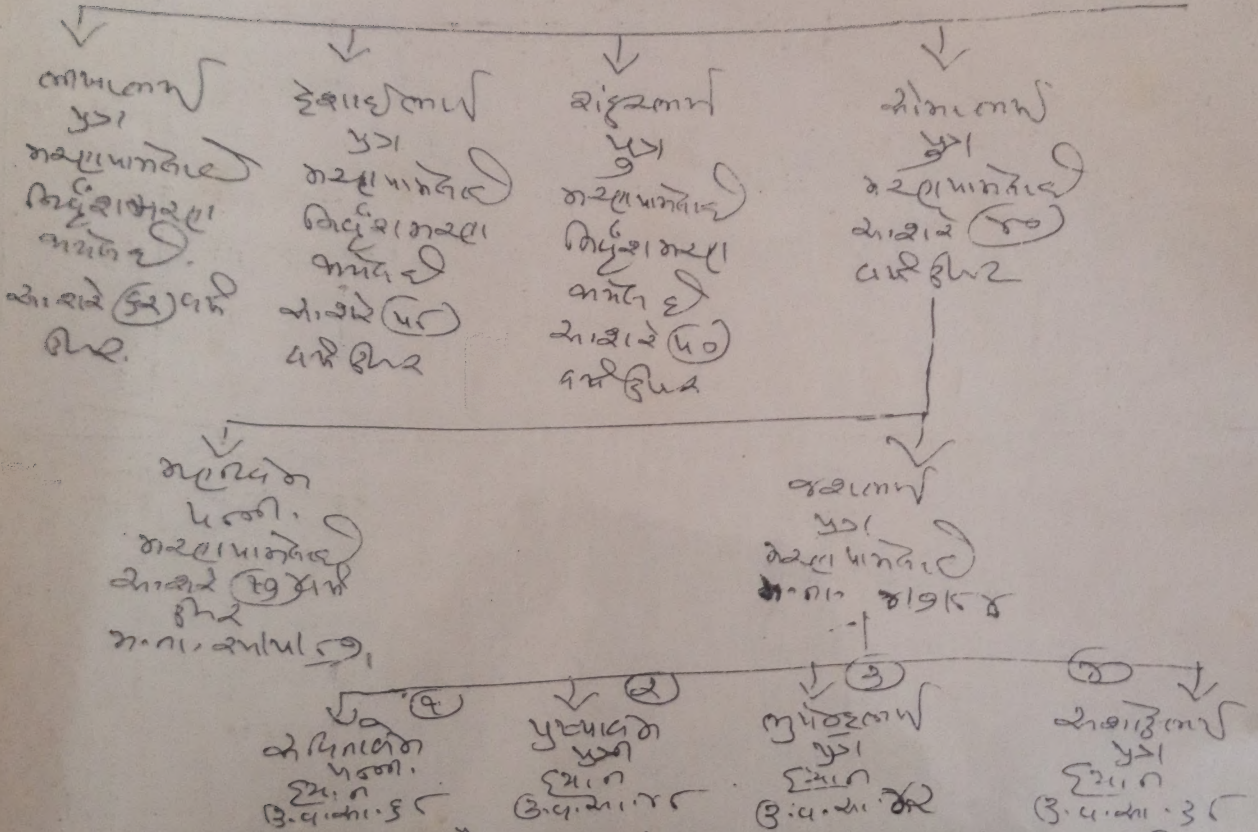 લાખાભાઈ
પુત્ર
મરણ પામેલ છે
નિર્વંશ મરણ
થયેલ છે.
આશરે ૬૨ વર્ષ
ઉપર.
દેસાઈભાઈ
પુત્ર
મરણ પામેલ છે
નિર્વંશ મરણ
થયેલ છે
આશરે ૫૮
વર્ષ ઉપર
શંકરભાઈ
પુત્ર
મરણ પામેલ છે
નિર્વંશ મરણ
થયેલ છે
આશરે ૫૦
વર્ષ ઉપર
સોમાભાઈ
પુત્ર
મરણ પામેલ છે
આશરે ૪૦
વર્ષ ઉપર
પત્ની.
મરણ પામેલ છે
આશરે ૧૭ વર્ષ
ઉપર
મ.તા.
જશભાઈ
પુત્ર
મરણ પામેલ છે
મ.તા.
૧ ૨ ૩ ૪
સવિતાબેન
પત્ની.
હયાત
ઉ.વ.આ. ૬૮
પુષ્પાબેન
પુત્રી
હયાત
ઉ.વ.આ. ૪૮
ભુપેન્દ્રભાઈ
પુત્ર
હયાત
ઉ.વ.આ. ૪૨
પુત્ર
હયાત
ઉ.વ.આ. ૩૮